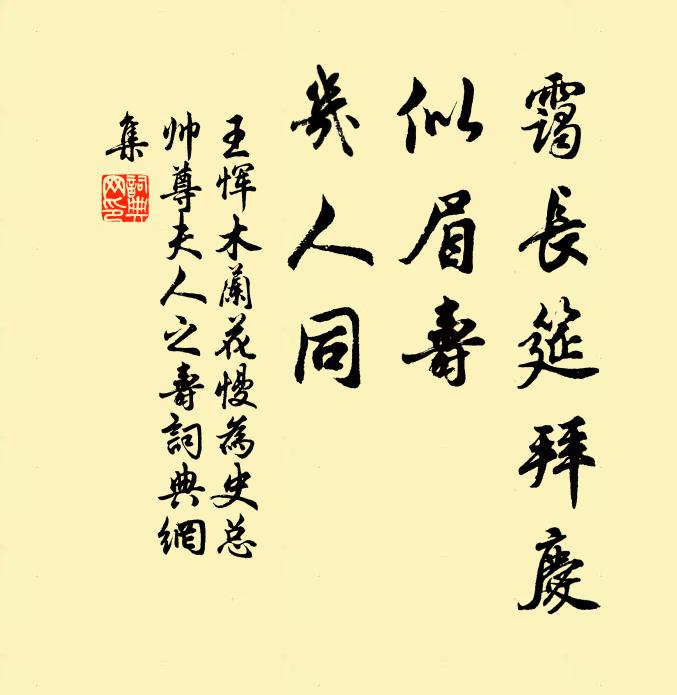 靄長筵拜慶
似眉壽
幾人同
王惲木蘭花慢為史总
帅尊夫人之壽詞典網
集
詞典
网印